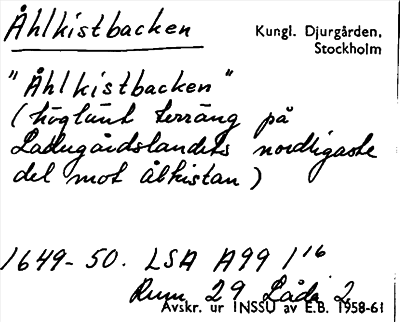 Åhlkistbacken
Kungl. Djurgården,
Stockholm
"Åhlkistbacken"
(höglänt terräng på
Ladugårdslandets nordligaste
del mot ålkistan)
1649-50. LSA A99 1 16
Rum 29 Låda 2
Avskr. ur INSSU av E.B. 1958-61